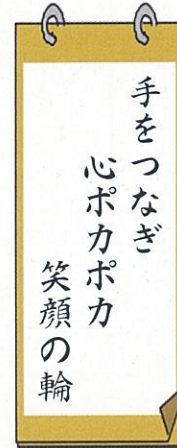 手をつなぎ
心ポカポカ
笑顔の輪